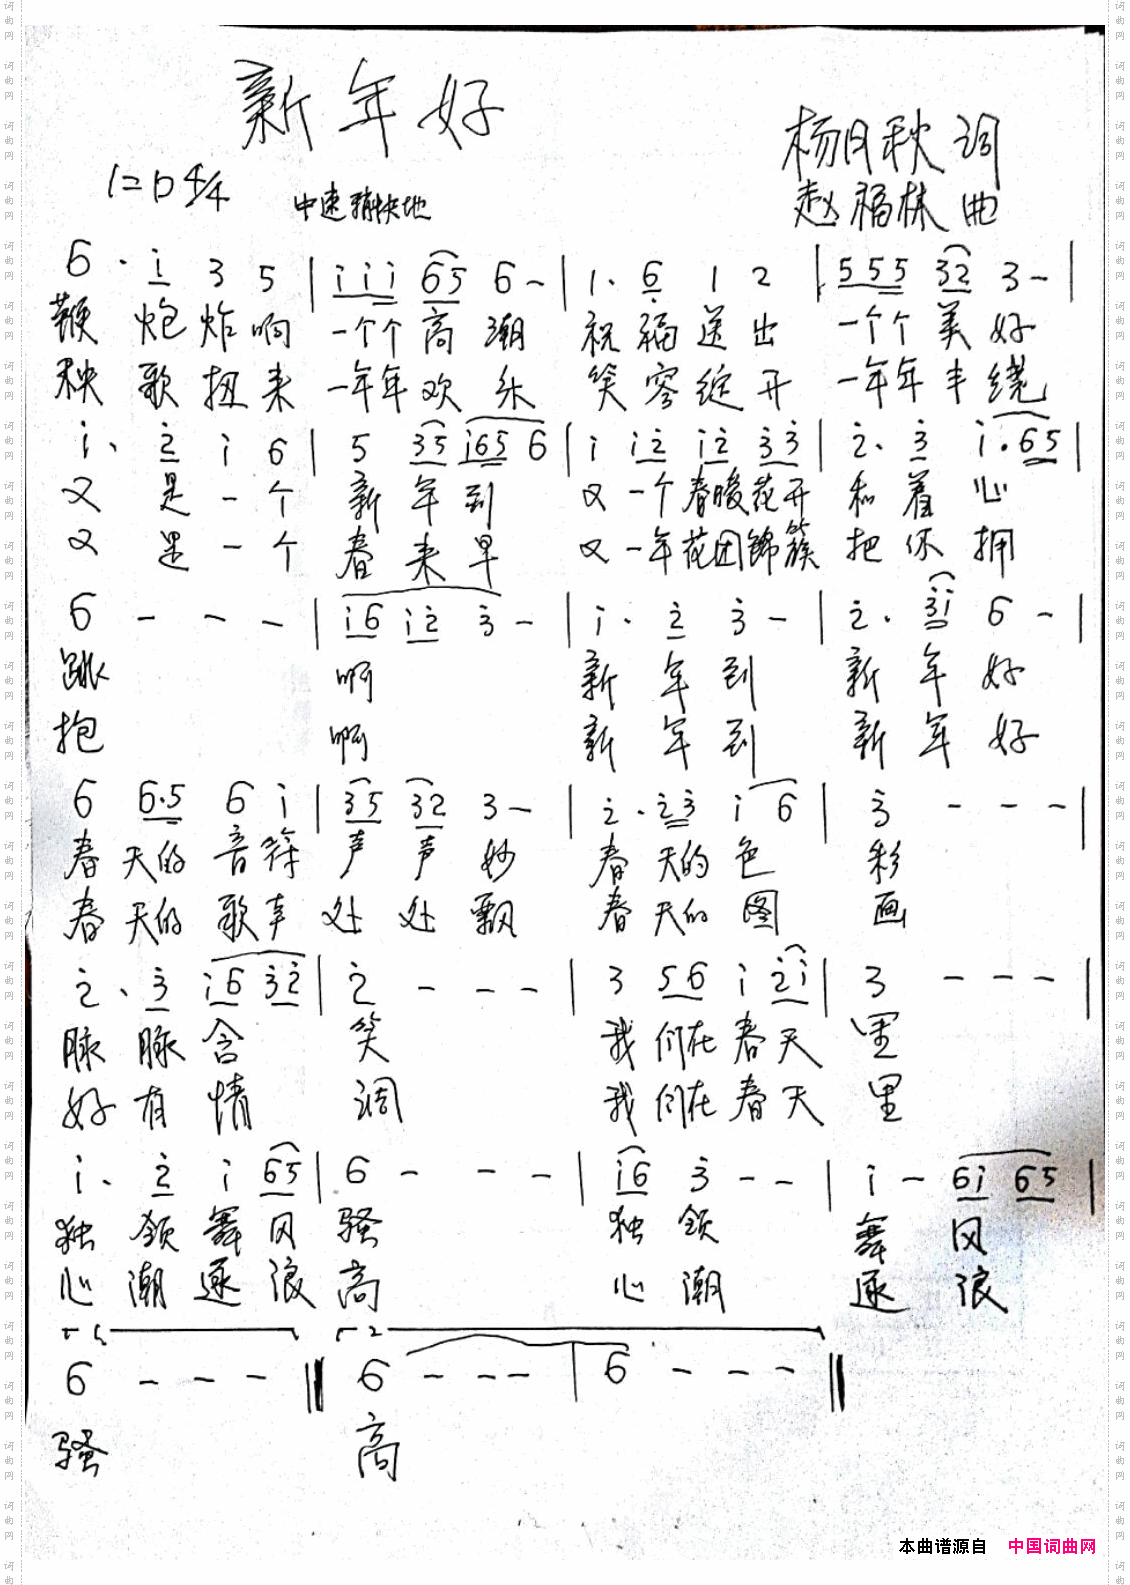 新年好
杨月秋 词
1=D 4/4 中速稍快地
赵福林 曲
6 · i 3 5 | i i i 6 5 6 - | 1 · 6 1 2 | 5 5 5 3 2 3 - |
鞭 炮 炸 响 一个个 高 潮 祝 福 送 出 一个个 美 好
秧 歌 扭 来 一年年 欢 乐 笑 容 绽 开 一年年 丰 绕
i · 2 i 6 | 5 3 5 i 6 5 6 | i i 2 i 2 3 3 | 2 · 3 i · 6 5 |
又 是 一 个 新 年 到 又 一个 春暖花开 和 着 心
又 是 一 个 春 来 早 又 一年 花团锦簇 把 你 拥
6 - - - | i 6 i 2 3 - | i · 2 3 - | 2 · 3 i 6 - |
跳 啊 新 年 到 新 年 好
抱 啊 新 年 到 新 年 好
6 6 · 5 6 i | 3 5 3 2 3 - | 2 · 2 3 i 6 | 3 - - - |
春 天的 音 符 声 声 妙 春 天的 色 彩
春 天的 歌 声 处 处 飘 春 天的 图 画
2 · 3 i 6 3 2 | 2 - - - | 3 5 6 i 2 i | 3 - - - |
脉 脉 含 笑 我 们在 春 天 里
好 有 情 调 我 们在 春 天 里
i · 2 i 6 5 | 6 - - - | i 6 3 - - | i - 6 i 6 5 |
独 领 舞 风 骚 独 领 舞 风
心 潮 逐 浪 高 心 潮 逐 浪
1 2
6 - - - ‖ 6 - - - | 6 - - - ‖
骚 高
本曲谱源自 中国词曲网